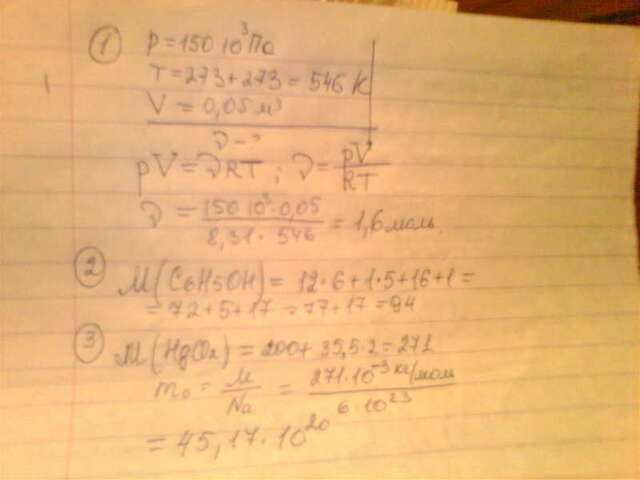 1
P = 150 10³ Па
T = 273 + 273 = 546 К
V = 0,05 м³
ν - ?
pV = νRT ; ν = pV/RT
ν = 150 10³ · 0,05 / 8,31 · 546 = 1,6 моль.
2
M (C6H5OH) = 12·6 + 1·5 + 16 + 1 =
= 72 + 5 + 17 = 77 + 17 = 94
3
M (HgCl2) = 200 + 35,5·2 = 271
m₀ = M/Na = 271·10⁻³ кг/моль / 6·10²³
= 45,17·10²⁰